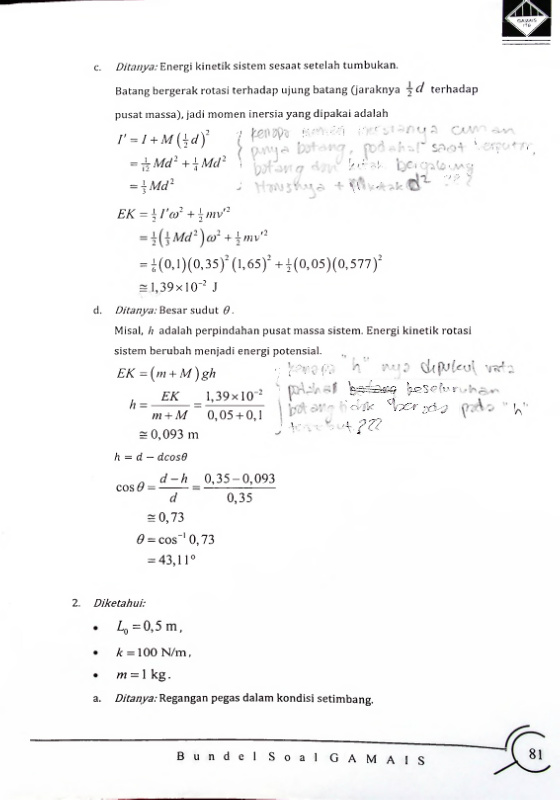 GAMAIS
ITB
c. Ditanya: Energi kinetik sistem sesaat setelah tumbukan.
Batang bergerak rotasi terhadap ujung batang (jaraknya ½d terhadap
pusat massa), jadi momen inersia yang dipakai adalah
I' = I + M(½d)²
= 1/12 Md² + ¼Md²
= ⅓Md²
kenapa inersianya cuman
punya batang, padahal saat berputar,
batang dan bergabung
Harusnya + d² ???
EK = ½I'ω² + ½mv'²
= ½(⅓Md²)ω² + ½mv'²
= ⅙(0,1)(0,35)²(1,65)² + ½(0,05)(0,577)²
≅ 1,39×10⁻² J
d. Ditanya: Besar sudut θ.
Misal, h adalah perpindahan pusat massa sistem. Energi kinetik rotasi
sistem berubah menjadi energi potensial.
EK = (m + M)gh
h = EK/(m + M) = 1,39×10⁻²/(0,05 + 0,1)
≅ 0,093 m
kenapa "h" nya dipukul rata
padahal batang keseluruhan
batang tidak berada pada "h"
tersebut ???
h = d − dcosθ
cosθ = (d − h)/d = (0,35 − 0,093)/0,35
≅ 0,73
θ = cos⁻¹ 0,73
= 43,11°
2. Diketahui:
• L₀ = 0,5 m,
• k = 100 N/m,
• m = 1 kg.
a. Ditanya: Regangan pegas dalam kondisi setimbang.
Bundel Soal GAMAIS
81